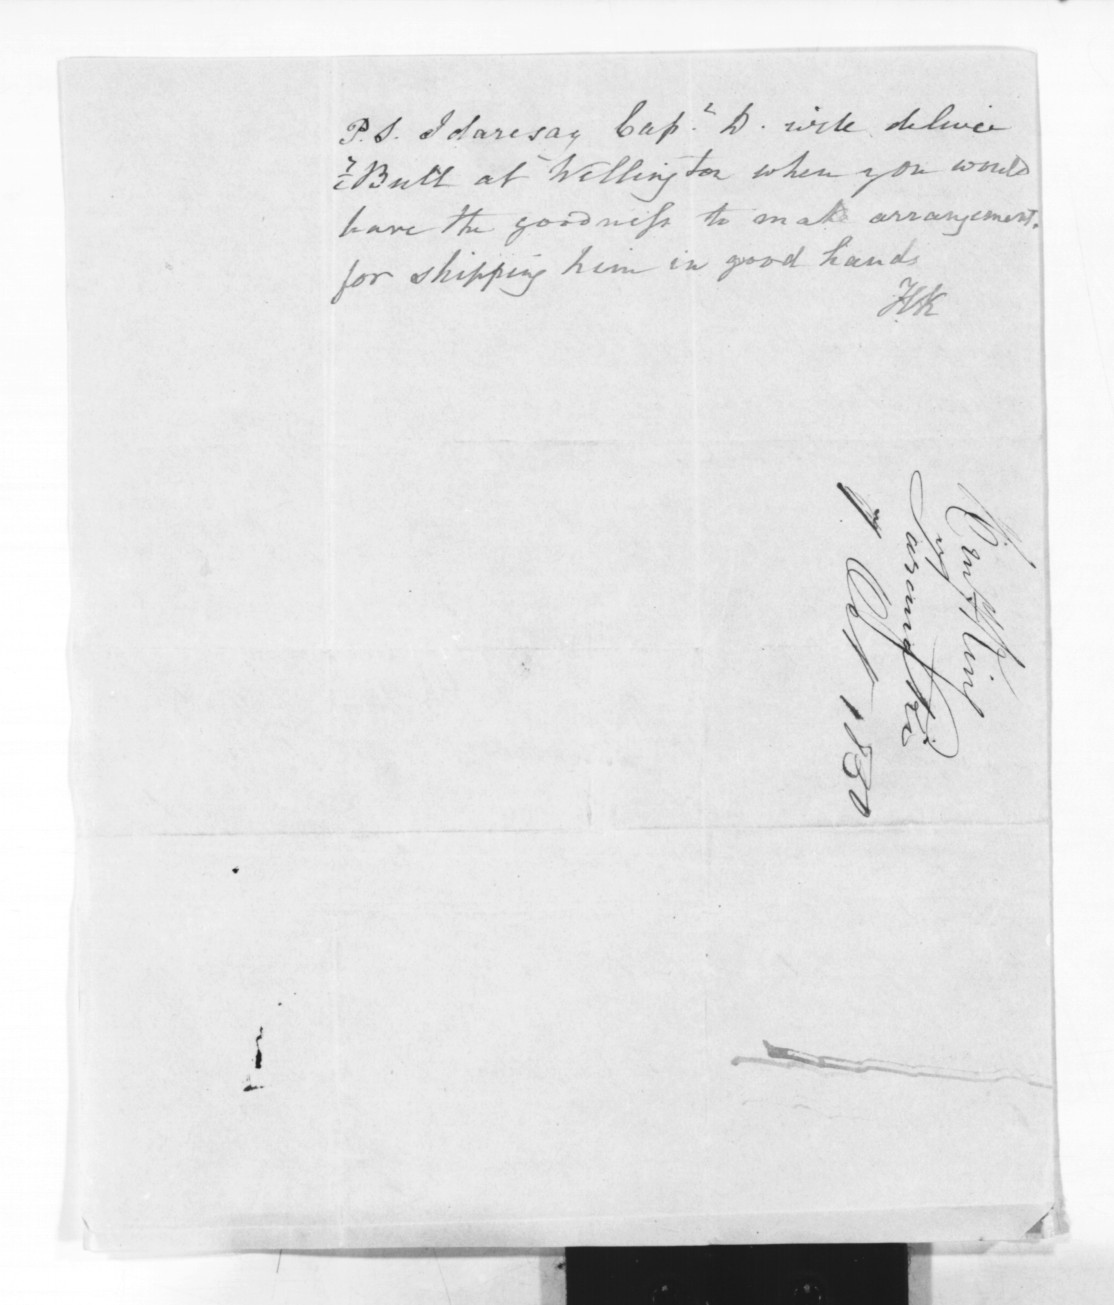 P.S. I daresay Capt. D. will deliver
ye Bull at Wellington when you would
have the goodness to make arrangement.
for shipping him in good hands
HK
7 Oct 1850